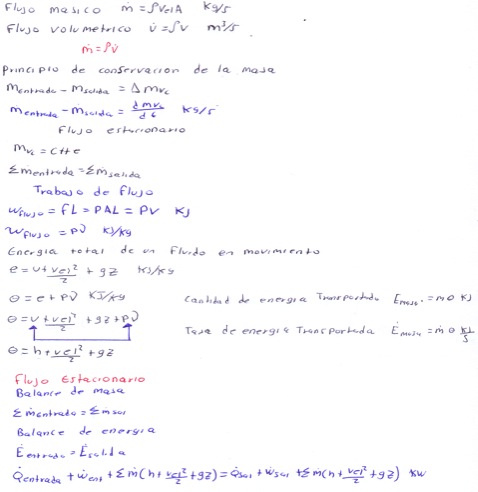 Flujo masico ṁ = ρVelA Kg/s
Flujo volumetrico v̇ = ∫V m³/s
ṁ = ρv̇
Principio de conservación de la masa
mentrada - msalida = Δmvc
ṁentrada - ṁsalida = dmvc/dt Kg/s
Flujo estacionario
mvc = Ctte
Σṁentrada = Σṁsalida
Trabajo de flujo
Wflujo = FL = PAL = PV KJ
wflujo = Pν KJ/kg
Energia total de un fluido en movimiento
e = u + vel²/2 + gz KJ/kg
θ = e + Pν KJ/kg Cantidad de energia Transportada Emasa = mθ KJ
θ = u + vel²/2 + gz + Pν Tasa de energia Transportada Ėmasa = ṁθ KJ/s
θ = h + vel²/2 + gz
Flujo Estacionario
Balance de masa
Σṁentrada = Σṁsal
Balance de energia
Ėentrada = Ėsalida
Q̇entrada + Ẇent + Σṁ(h + vel²/2 + gz) = Q̇sal + Ẇsal + Σṁ(h + vel²/2 + gz) KW